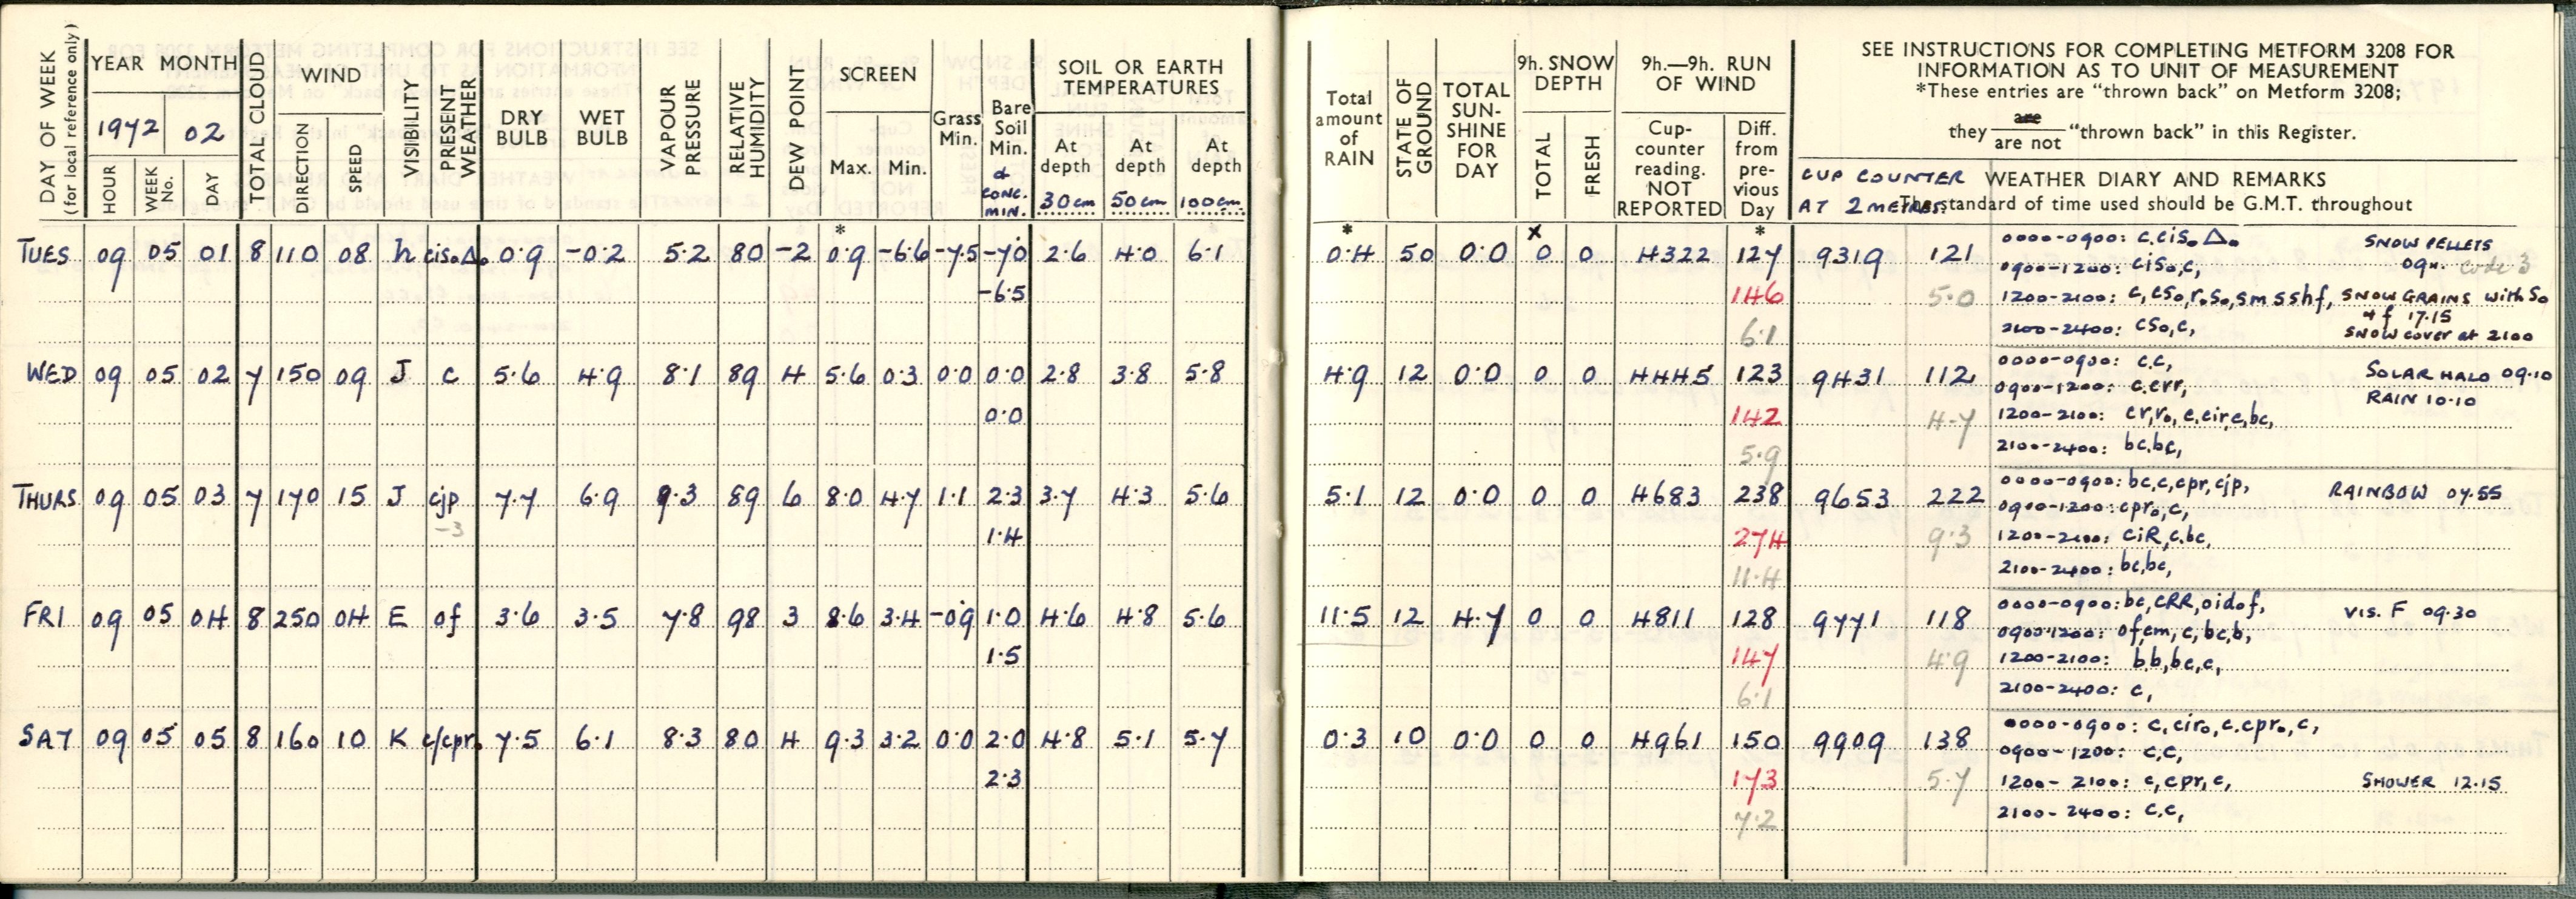 DAY OF WEEK
(for local reference only)
YEAR MONTH
1972 02
HOUR
WEEK No.
DAY
TOTAL CLOUD
WIND
DIRECTION
SPEED
VISIBILITY
PRESENT WEATHER
DRY BULB
WET BULB
VAPOUR PRESSURE
RELATIVE HUMIDITY
DEW POINT
SCREEN
Max. Min.
Grass Min.
Bare Soil Min.
& CONC. MIN.
SOIL OR EARTH TEMPERATURES
At depth 30cm
At depth 50cm
At depth 100cm
Total amount of RAIN
STATE OF GROUND
TOTAL SUN-SHINE FOR DAY
9h. SNOW DEPTH
TOTAL
FRESH
9h.—9h. RUN OF WIND
Cup-counter reading. NOT REPORTED
Diff. from pre-vious Day
SEE INSTRUCTIONS FOR COMPLETING METFORM 3208 FOR
INFORMATION AS TO UNIT OF MEASUREMENT
*These entries are “thrown back” on Metform 3208;
they are / are not “thrown back” in this Register.
CUP COUNTER
AT 2 METRES.
WEATHER DIARY AND REMARKS
The standard of time used should be G.M.T. throughout
TUES 09 05 01 8 110 08 h cis₀Δ₀ 0·9 -0·2 5·2 80 -2 0·9 -6·6 -7·5 -7·0 2·6 4·0 6·1
-6·5
0·4 50 0·0 0 0 4322 127 9319 121
146 5·0
6·1
0000-0900: c,cis₀Δ₀ SNOW PELLETS
09H. code 3
0900-1200: cis₀,c,
1200-2100: c,cs₀,r₀s₀,smsshf, SNOW GRAINS with S₀
+ f 17.15
2100-2400: cs₀,c, SNOW cover at 2100
WED 09 05 02 7 150 09 J c 5·6 4·9 8·1 89 4 5·6 0·3 0·0 0·0 2·8 3·8 5·8
0·0
4·9 12 0·0 0 0 4445 123 9431 112
142 4·7
5·9
0000-0900: c.c, SOLAR HALO 09.10
0900-1200: c.crr, RAIN 10.10
1200-2100: cr,r₀,c,circ,bc,
2100-2400: bc.bc,
THURS 09 05 03 7 170 15 J cjp 7·7 6·9 9·3 89 6 8·0 4·7 1·1 2·3 3·7 4·3 5·6
-3
1·4
5·1 12 0·0 0 0 4683 238 9653 222
274 9·3
11·4
0000-0900: bc,c,cpr,cjp, RAINBOW 07.55
0900-1200: cpr₀,c,
1200-2100: ciR,c.bc,
2100-2400: bc,bc,
FRI 09 05 04 8 250 04 E of 3·6 3·5 7·8 98 3 8·6 3·4 -0·9 1·0 4·6 4·8 5·6
1·5
11·5 12 4·7 0 0 4811 128 9771 118
147 4·9
6·1
0000-0900: bc,cRR,oidof, VIS. F 09.30
0900-1200: ofcm,c,bc,b,
1200-2100: bb,bc,c,
2100-2400: c,
SAT 09 05 05 8 160 10 K c/cpr₀ 7·5 6·1 8·3 80 4 9·3 3·2 0·0 2·0 4·8 5·1 5·7
2·3
0·3 10 0·0 0 0 4961 150 9909 138
173 5·7
7·2
0000-0900: c,cir₀,c.cpr₀,c,
0900-1200: c,c,
1200-2100: c,cpr,c, SHOWER 12.15
2100-2400: c.c,